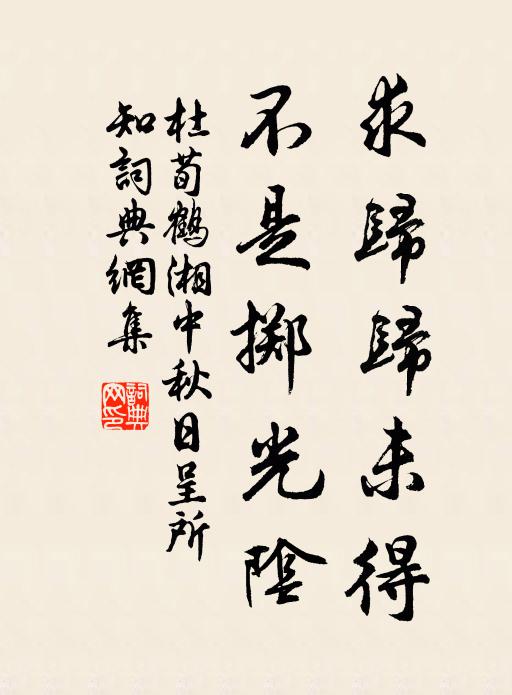 求歸歸未得
不是擲光陰
杜荀鶴湘中秋日呈所
知詞典網集
詞典
網印